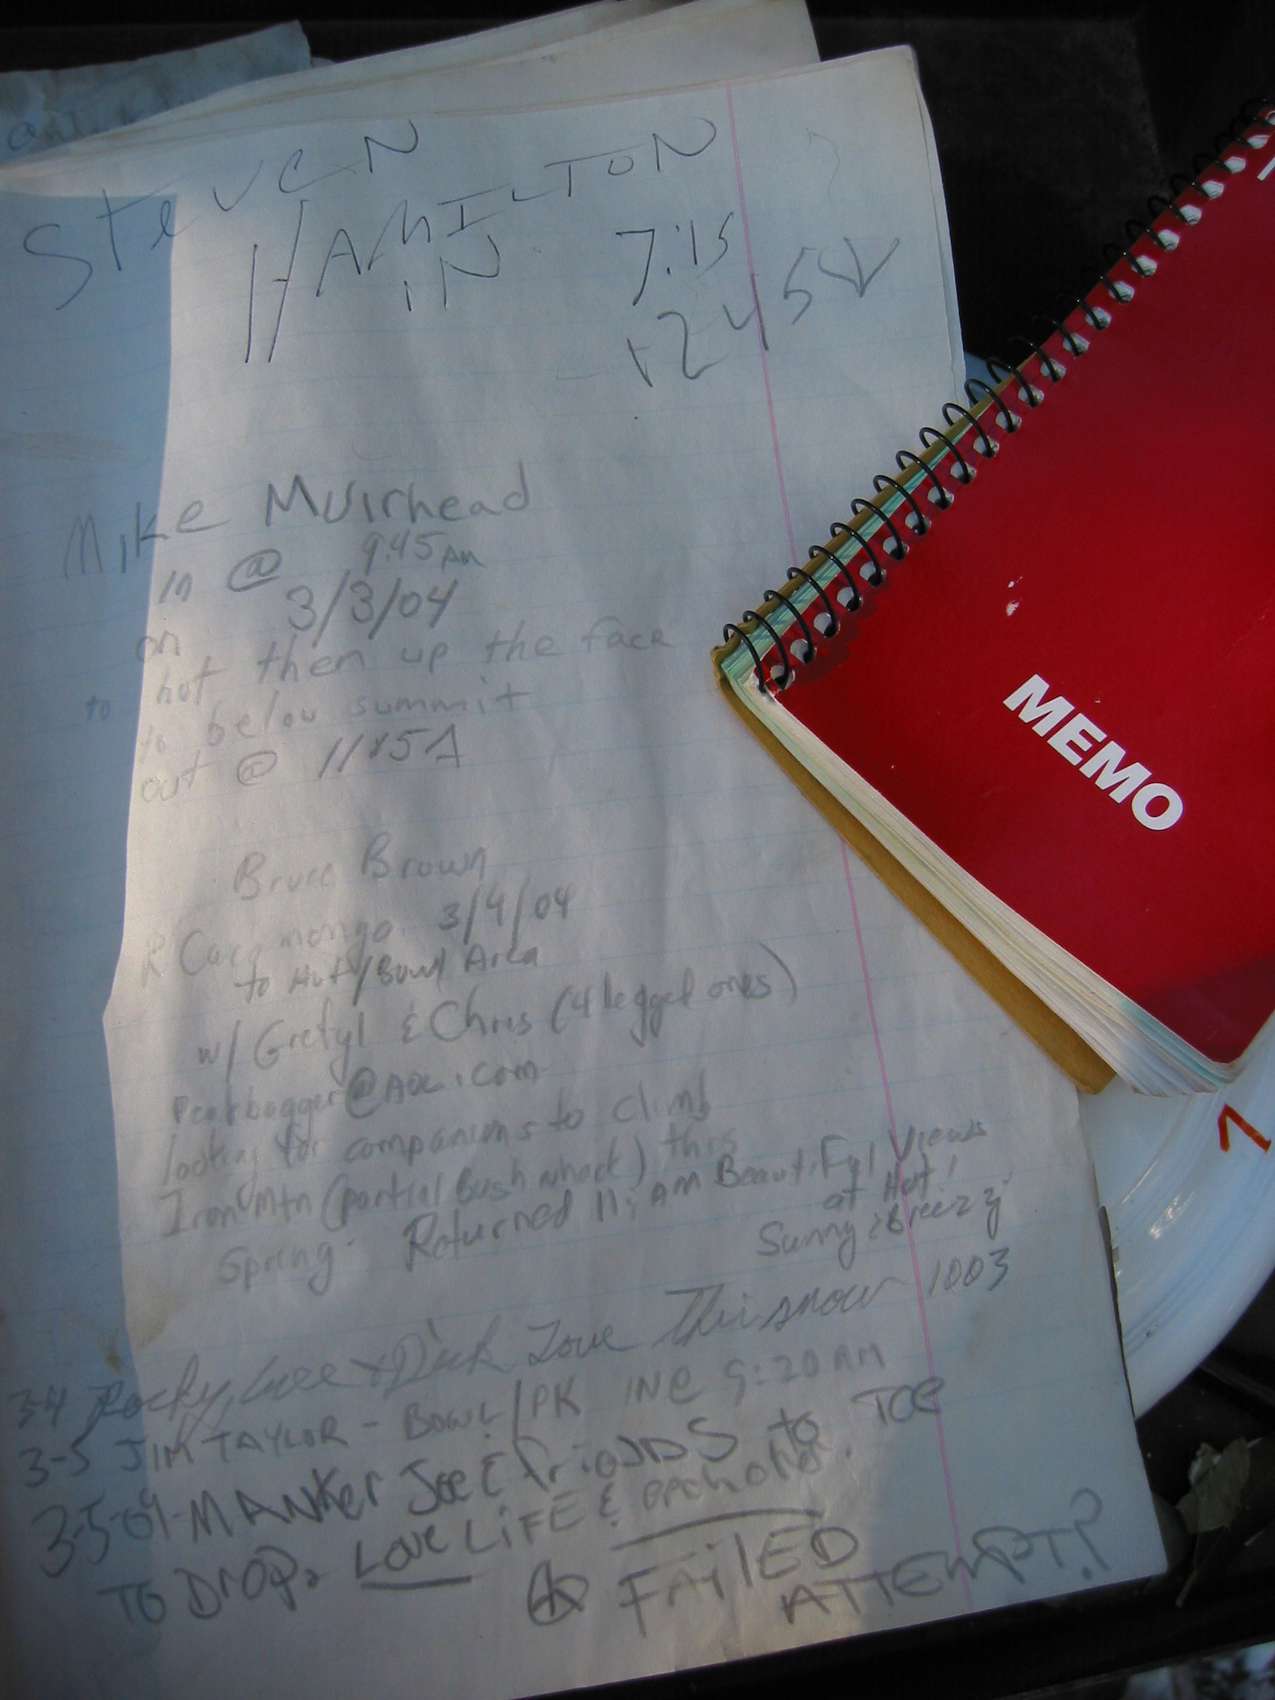 Steven
HAMILTON
iN 7:15
Mike Muirhead
in @ 9:45 AM
on 3/3/04
to hut then up the face
to below summit
out @
Bruce Brown
R Cucamonga 3/4/04
to Hut/Bowl Area
w/ Gretyl & Chris (4 legged ones)
Peakbagger@AOL.com
looking for companions to climb
Iron Mtn (partial Bushwhack) this
Spring. Returned 11: AM Beautiful Views
at Hut!
Sunny & Breezy
3-4 Rocky, Love This snow 1003
3-5 JIM TAYLOR - BOWL/PK 9:20 AM
3-5-04 - MANKer Joe & friends to
TO Drop. Love LiFE &
FAilED
ATTEMPT?
MEMO